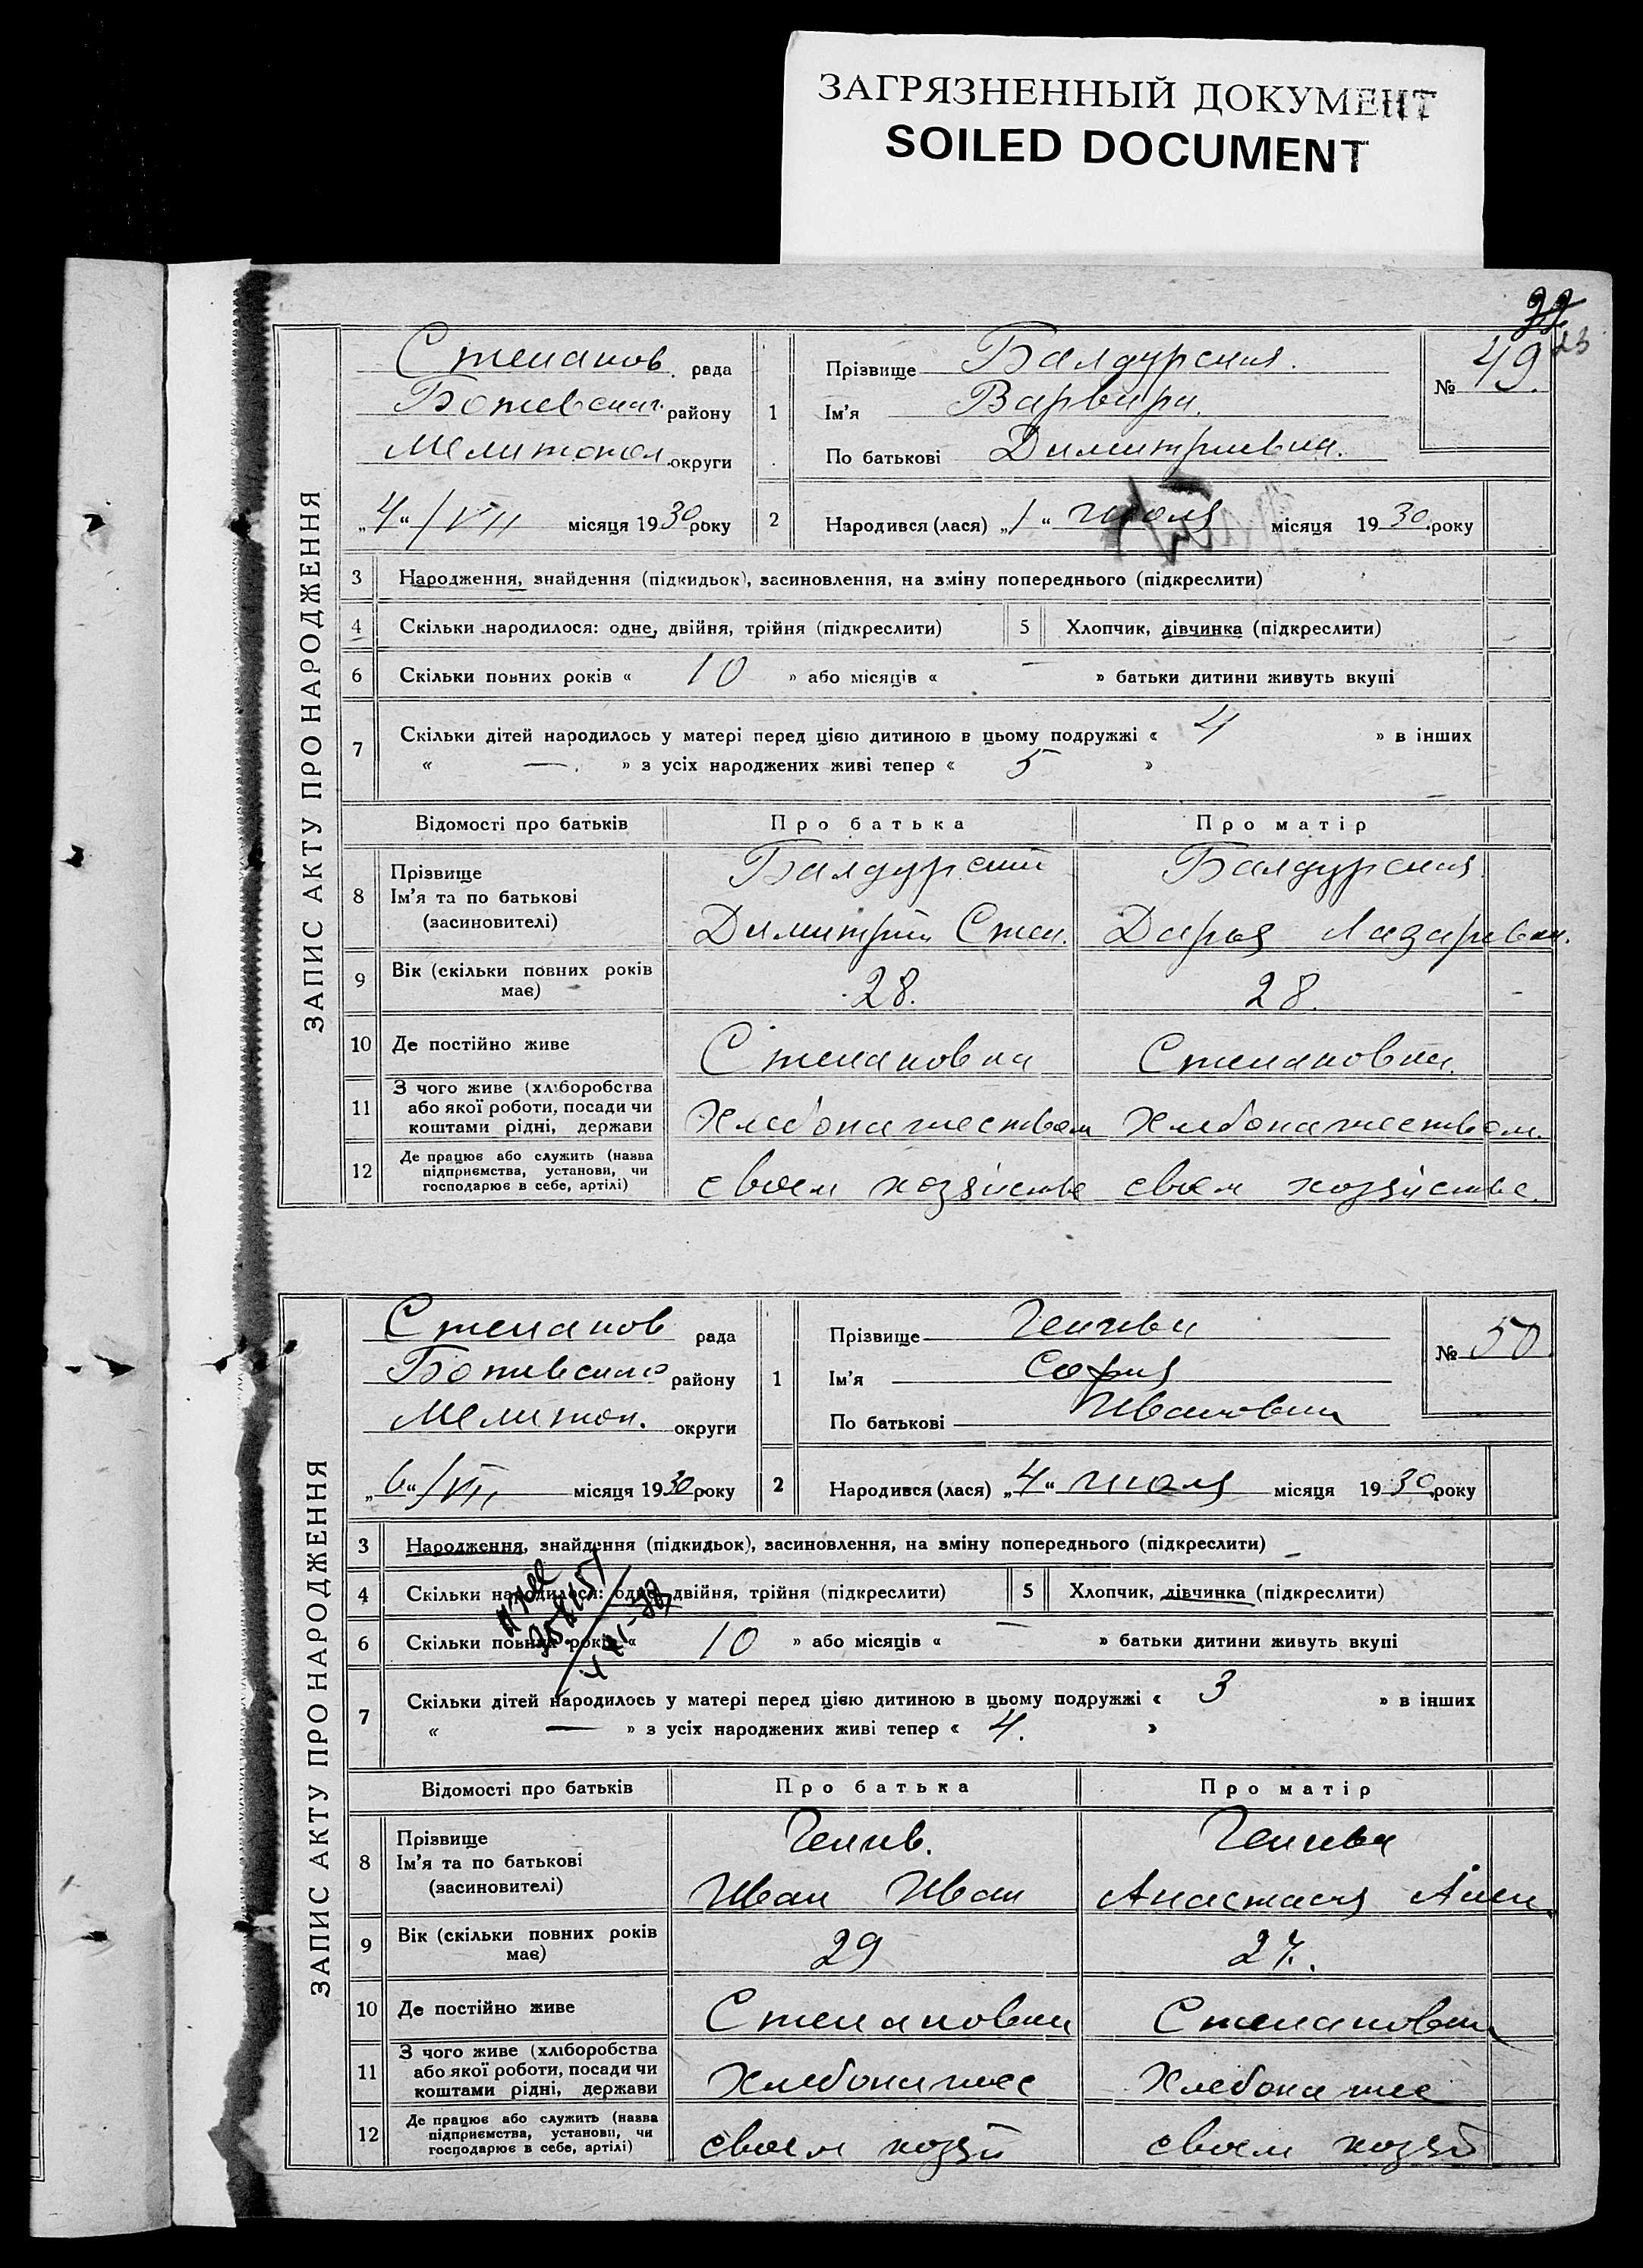 ЗАГРЯЗНЕННЫЙ ДОКУМЕНТ
SOILED DOCUMENT
23
ЗАПИС АКТУ ПРО НАРОДЖЕННЯ
Степанов. рада
Ботиевског. району
Мелитопол. округи
„4“ /VII місяця 1930 року
1 Прізвище Балдурская.
Ім'я Варвара.
По батькові Димитриевна.
№ 49.
2 Народився (лася) „1“ июля місяця 1930. року
3 Народження, знайдення (підкидьок), засиновлення, на зміну попереднього (підкреслити)
4 Скільки народилося: одне, двійня, трійня (підкреслити) 5 Хлопчик, дівчинка (підкреслити)
6 Скільки повних років « 10 » або місяців « — » батьки дитини живуть вкупі
7 Скільки дітей народилось у матері перед цією дитиною в цьому подружжі « 4 » в інших
« —. » з усіх народжених живі тепер « 5 »
Відомості про батьків Про батька Про матір
8 Прізвище Балдурский Балдурская
Ім'я та по батькові
(засиновителі) Димитрий Степ. Дарья Лазаревна.
9 Вік (скільки повних років має) 28. 28.
10 Де постійно живе Степановка Степановка.
11 З чого живе (хліборобства
або якої роботи, посади чи
коштами рідні, держави Хлебопашеством Хлебопашеством.
12 Де працює або служить (назва
підприємства, установи, чи
господарює в себе, артілі) своем хозяйстве своем хозяйстве.
ЗАПИС АКТУ ПРО НАРОДЖЕННЯ
Степанов рада
Ботиевского району
Мелитоп. округи
„6“ /VII, місяця 1930 року
1 Прізвище Генчева
Ім'я София
По батькові Ивановна
№ 50.
2 Народився (лася) „4“ июля місяця 1930. року
3 Народження, знайдення (підкидьок), засиновлення, на зміну попереднього (підкреслити)
4 Скільки народилося: одне, двійня, трійня (підкреслити) 5 Хлопчик, дівчинка (підкреслити)
6 Скільки повних років « 10 » або місяців « — » батьки дитини живуть вкупі
7 Скільки дітей народилось у матері перед цією дитиною в цьому подружжі « 3 » в інших
« — » з усіх народжених живі тепер « 4. »
Відомості про батьків Про батька Про матір
8 Прізвище Генчев. Генчева
Ім'я та по батькові
(засиновителі) Иван Иван Анастасия
9 Вік (скільки повних років має) 29 27.
10 Де постійно живе Степановка Степановка
11 З чого живе (хліборобства
або якої роботи, посади чи
коштами рідні, держави Хлебопашес Хлебопашес
12 Де працює або служить (назва
підприємства, установи, чи
господарює в себе, артілі) своем хозяй своем хозяй